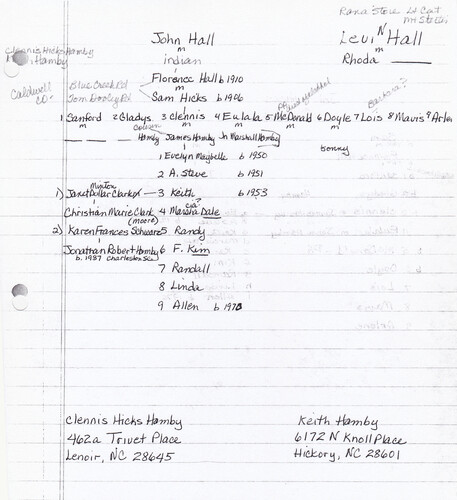 Rana Store
John Hall
Levi N Hall
m
m
Clennis Hicks Hamby
Hamby
indian
Rhoda
Florence Hall b 1910
Blue Creek Rd
Caldwell
Co.
m
Tom Dooley Rd
Sam Hicks b 1906
1 Sanford 2 Gladys 3 Clennis 4 Eulala 5 McDonald 6 Doyle 7 Lois 8 Mavis 9 Arlen
m
m
m
m
Hamby James Hamby Jr Marshall Hamby
1 Evelyn Maybelle b 1950
2 A. Steve b 1951
Minton
1) Janet Dollar Clark 3 Keith b 1953
Christian Marie Clark 4 Marsha Dale
(moore)
2) Karen Frances Schwarz 5 Randy
Jonathan Robert Hamby 6 F. Kim
b. 1987 Charleston SC
7 Randall
8 Linda
9 Allen b 1973
Clennis Hicks Hamby
Keith Hamby
462a Trivet Place
6172 N Knoll Place
Lenoir, NC 28645
Hickory, NC 28601